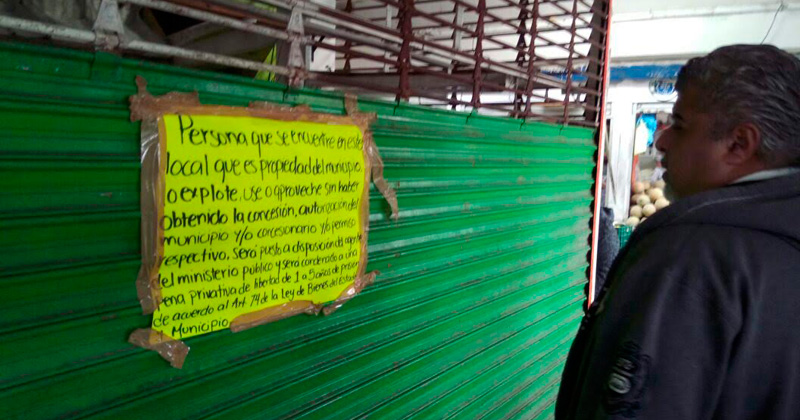 Persona que se encuentre en este
local que es propiedad del municipio
o explote, use o aproveche sin haber
obtenido la concesión, autorización del
municipio y/o concesionario y/o permiso
respectivo. Será puesto a disposición del agente
del ministerio publico y será condenado a una
pena privativa de libertad de 1 a 5 años de prisión
de acuerdo al Art. 74 de la Ley de Bienes del Estado
Municipio